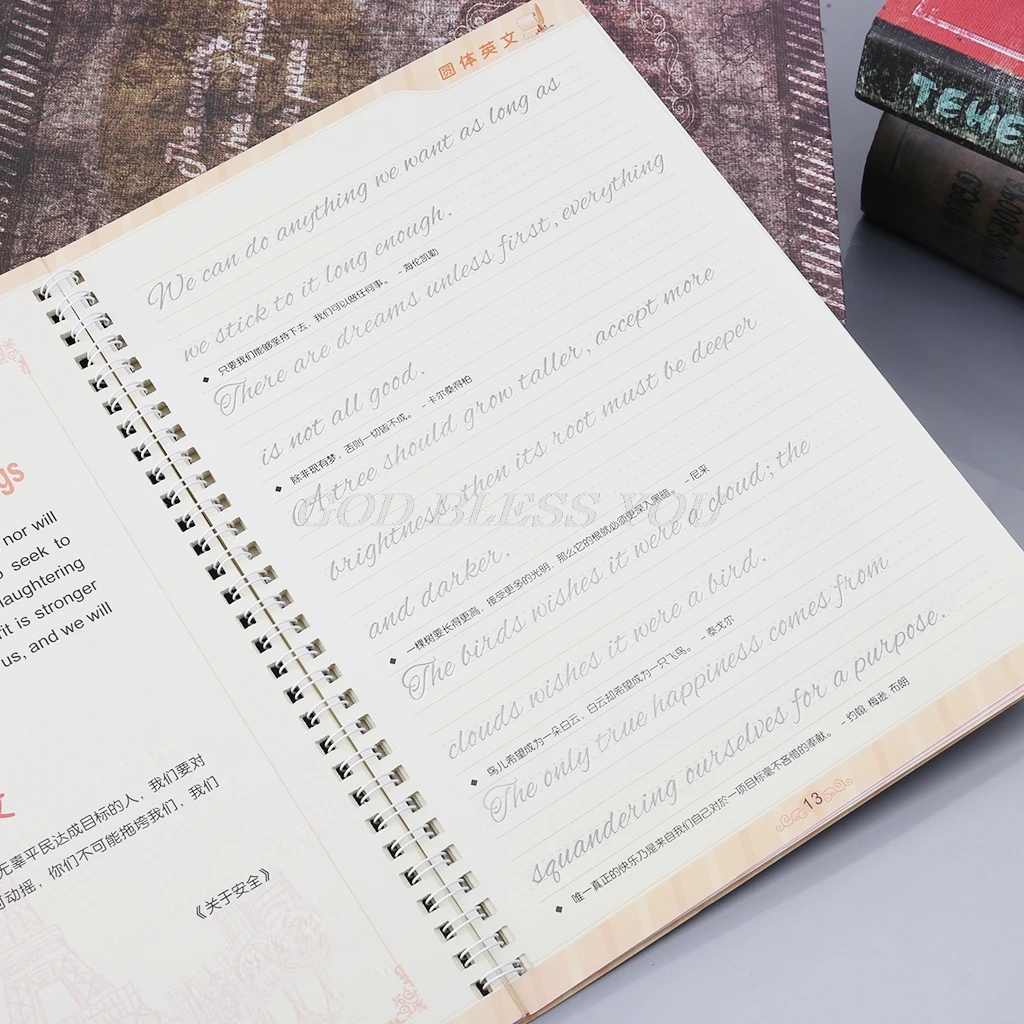 The country
圆体英文
We can do anything we want as long as
we stick to it long enough.
只要我们能够坚持下去，我们可以做任何事。 -海伦凯勒
There are dreams unless first, everything
is not all good.
除非现有梦，否则一切皆不成。 -卡尔桑得柏
A tree should grow taller, accept more
brightness, then its root must be deeper
and darker.
一棵树要长得更高，接受更多的光明，那么它的根就必须更深入黑暗。 -尼采
The birds wishes it were a cloud; the
clouds wishes it were a bird.
鸟儿希望成为一朵白云，白云却希望成为一只飞鸟。 -泰戈尔
The only true happiness comes from
squandering ourselves for a purpose.
唯一真正的快乐乃是来自我们自己对於一项目标毫不吝惜的奉献。 -约翰 梅逊 布朗
13
GOD BLESS YOU
gs
nor will
seek to
laughtering
it is stronger
us, and we will
文
无辜平民达成目标的人，我们要对
可动摇，你们不可能拖垮我们，我们
《关于安全》
TEHE